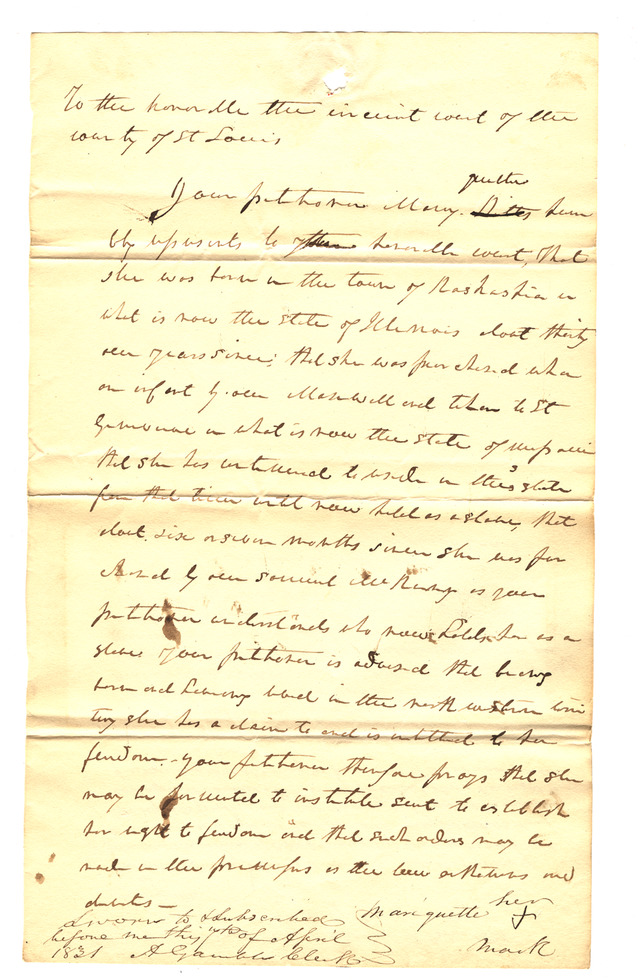 To the honorable the circuit court of the
county of St Louis
Your petitioner Mary quette hum
bly represents to your honorable court, that
she was born in the town of Kaskaskia in
what is now the state of Illinois about thirty
one years since; that she was purchased when
an infant by one Maxwell and taken to St
Genevieve in what is now the state of Missouri
that she has continued to reside in this state
from that time until now held as a slave, that
about six or seven months since she was pur
chased by one Samuel McKinney as your
petitioner understands who now holds her as a
slave your petitioner is advised that being
born and having lived in the north western terri
tory she has a claim to and is entitled to her
freedom - your petitioner therefore prays that she
may be permitted to institute suit to establish
her right to freedom and that such orders may be
made in the premises as the law authorises and
directs -
Sworn to & subscribed
before me this 7th of April
1831 A Gamble Clerk
Mariquette her
mark